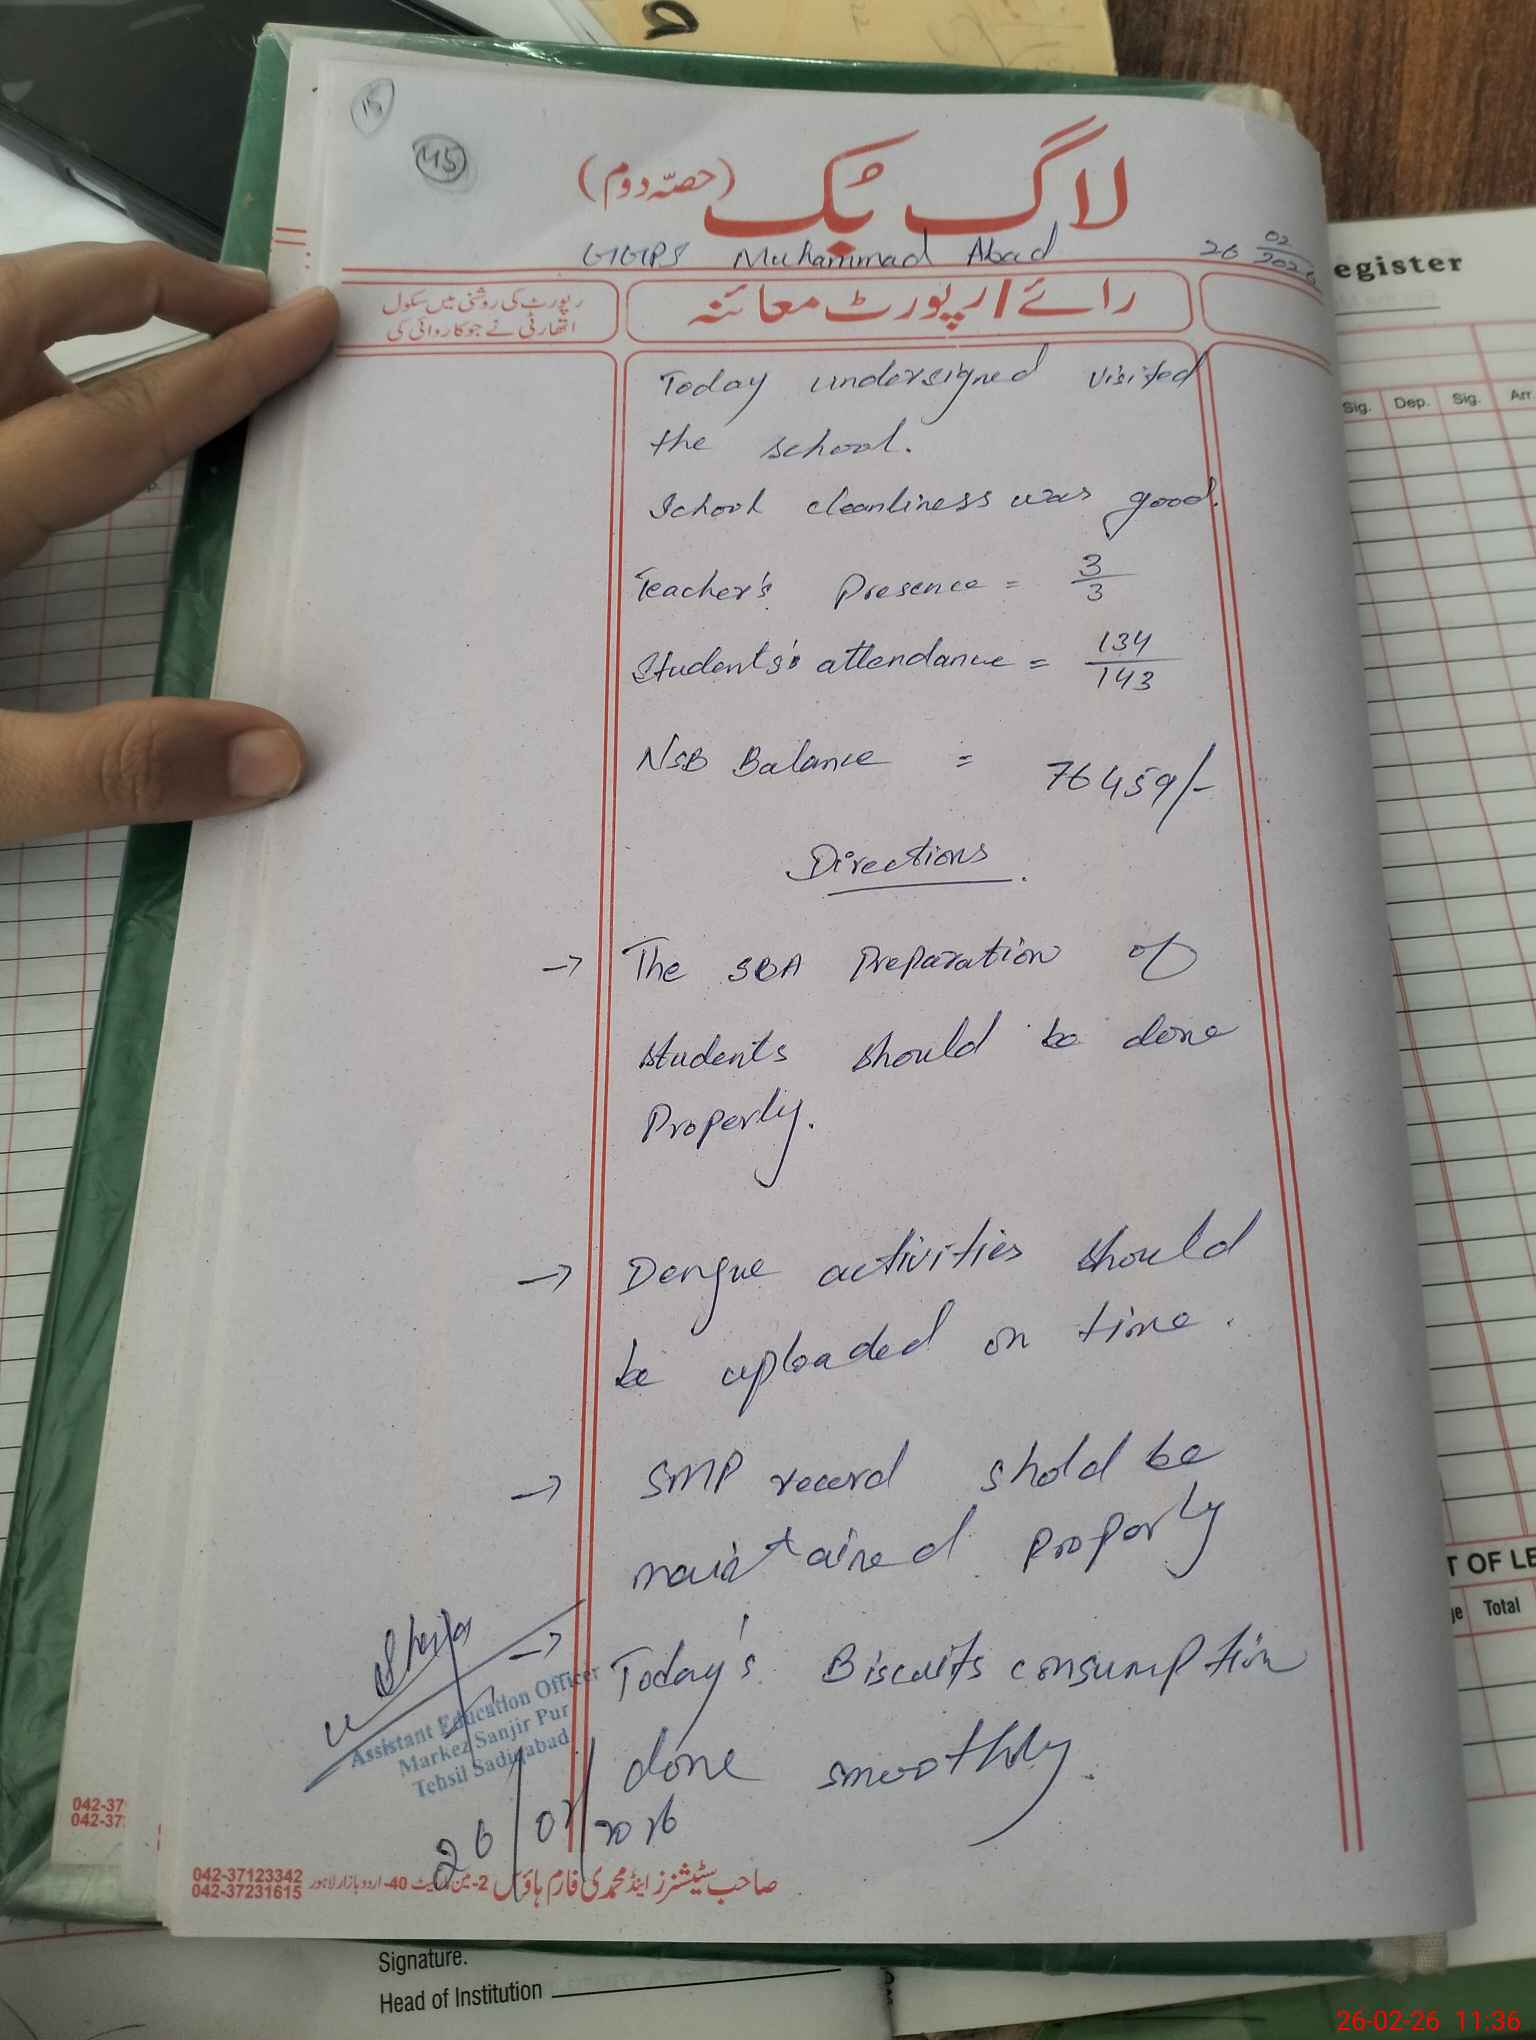 15
45
لاگ بُک (حصّہ دوم)
GGPS Muhammad Abad 26 02 2026
egister
رائے / رپورٹ معائنہ
رپورٹ کی روشنی میں سکول
اتھارٹی نے جو کاروائی کی
Sig. Dep. Sig. Arr.
Today undersigned visited
the school.
School cleanliness was good.
Teacher's Presence = 3/3
Students's attendance = 134/143
NSB Balance = 76459/-
Directions.
→ The SBA Preparation of
students should be done
Properly.
→ Dengue activities should
be uploaded on time.
→ SMP record shold be
maintained properly
→ Today's Biscuits consumption
done smoothly.
Assistant Education Officer
Markez Sanjir Pur
Tehsil Sadiqabad
26/02/2026
T OF LE
ge Total
042-37
042-37
صاحب سٹیشنرز اینڈ محمدی فارم ہاؤس 2- 40-اردو بازار لاہور
042-37123342
042-37231615
Signature.
Head of Institution
26-02-26 11:36